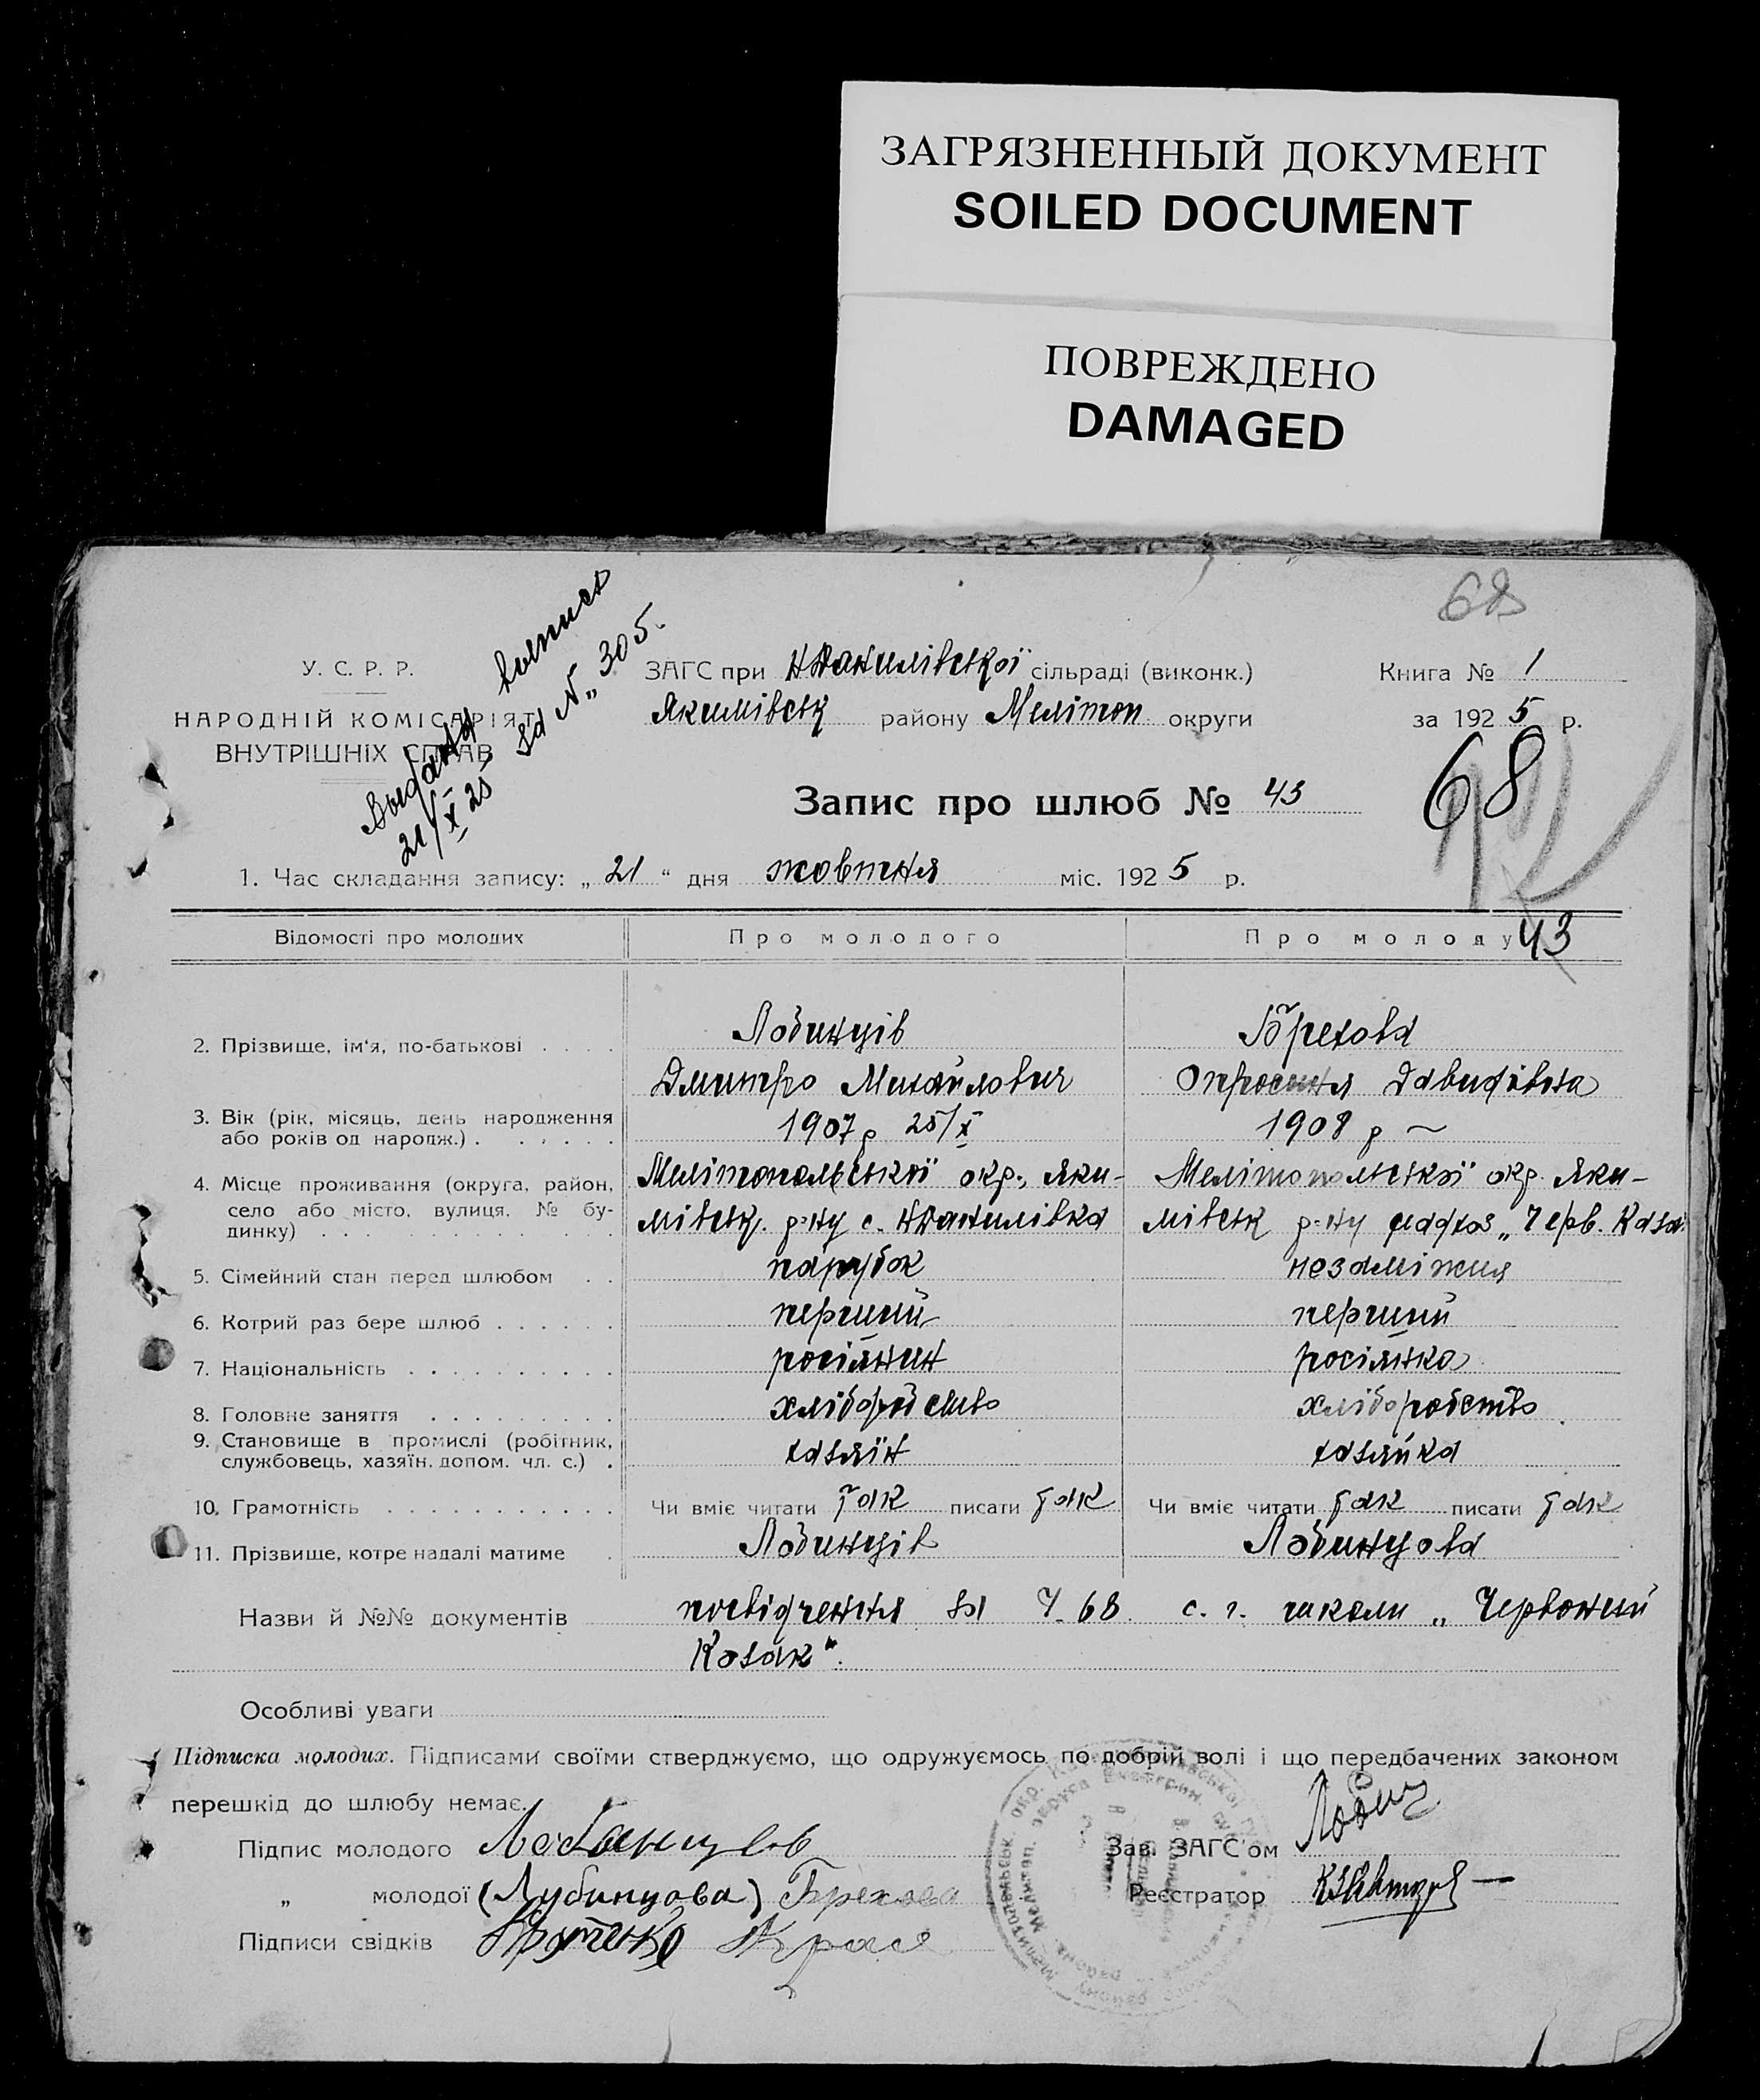 ЗАГРЯЗНЕННЫЙ ДОКУМЕНТ
SOILED DOCUMENT
ПОВРЕЖДЕНО
DAMAGED
68
Выдана выпись
21/X 25 за № 305.
У. С. Р. Р.
НАРОДНІЙ КОМІСАРІЯТ
ВНУТРІШНІХ СПРАВ
ЗАГС при Н Данилівської сільраді (виконк.)
Якимівськ району Мелітоп округи
Книга № 1
за 1925 р.
68
Запис про шлюб № 43
1. Час складання запису: „ 21 “ дня жовтня міс. 1925 р.
Відомості про молодих Про молодого Про молоду 43
2. Прізвище, ім'я, по-батькові Лобинців Брехова
Дмитро Михайлович Опросиня Давидівна
3. Вік (рік, місяць, день народження або років од народж.) 1907 р 25/X 1908 р ~
4. Місце проживання (округа, район, село або місто, вулиця, № будинку) Мелітопольської окр., Яки- Мелітопольської окр. Яки-
мівськ. р-ну с. Н Данилівка мівськ р-ну радхоз „Черв. Коза.
5. Сімейний стан перед шлюбом парубок незаміжня
6. Котрий раз бере шлюб перший перший
7. Національність росіянин росіянка
8. Головне заняття хліборобство хліборобство
9. Становище в промислі (робітник, службовець, хазяїн, допом. чл. с.) хазяїн хазяйка
10. Грамотність Чи вміє читати так писати так Чи вміє читати так писати так
11. Прізвище, котре надалі матиме Лобинців Лобинцова
Назви й №№ документів посвідчення за Ч. 68. с. г. школи „Червоний
Козак“.
Особливі уваги
Підписка молодих. Підписами своїми стверджуємо, що одружуємось по добрій волі і що передбачених законом
перешкід до шлюбу немає.
Підпис молодого Лобынцов
Зав. ЗАГС'ом Лобин
„ молодої (Лубинцова) Брехова
Реєстратор
Підписи свідків